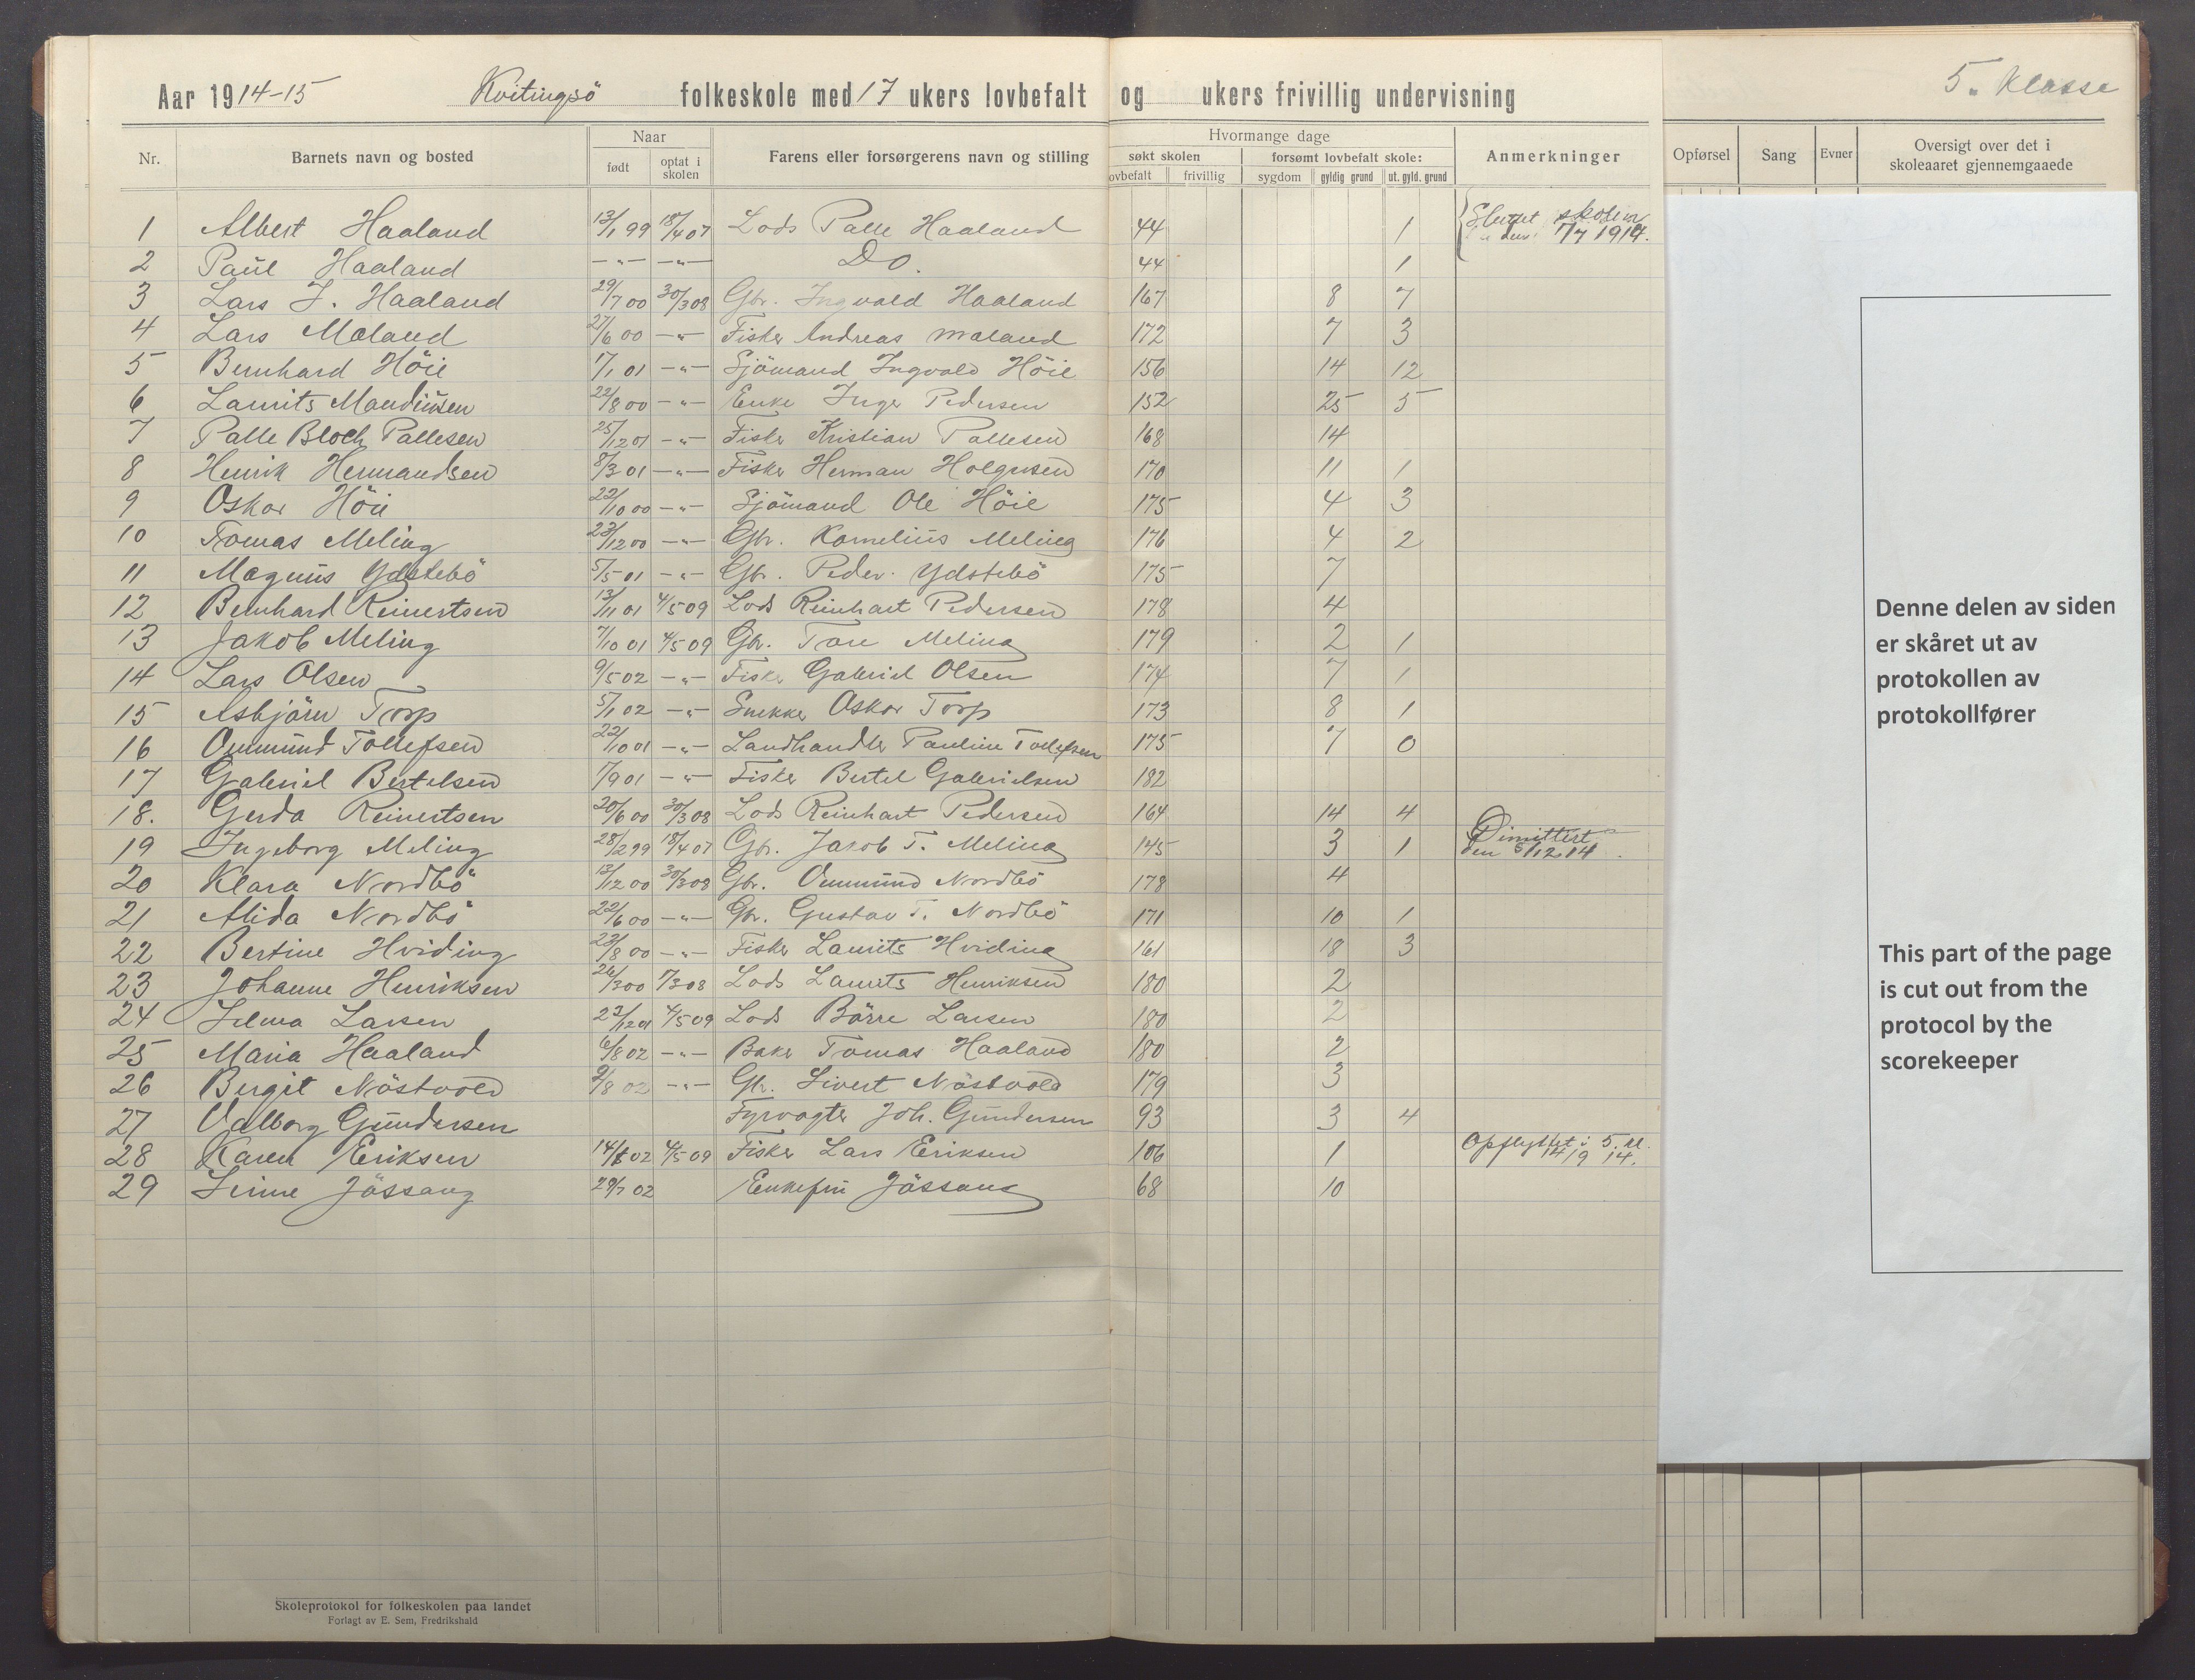 Aar 1914-15 Kvitingsö folkeskole med 17 ukers lovbefalt og ukers frivillig undervisning
5. Klasse
Nr. Barnets navn og bosted Naar født optat i skolen Farens eller forsørgerens navn og stilling Hvormange dage søkt skolen ovbefalt frivillig forsømt lovbefalt skole: sygdom gyldig grund ut. gyld. grund Anmerkninger Opførsel Sang Evner Oversigt over det i skoleaaret gjennemgaaede
1 Albert Haaland 13/1 99 18/4 07 Lods Palle Haaland 44 1 Sluttet skolen den 1/7 1914.
2 Paul Haaland -"- -"- Do. 44 1
3 Lars J. Haaland 29/7 00 30/3 08 Gbr. Ingvald Haaland 167 8 7
4 Lars Maland 27/6 00 -"- Fisker Andreas Maland 172 7 3
5 Bernhard Höie 17/1 01 -"- Sjömand Ingvald Höie 156 14 12
6 Laurits Maudiussen 22/8 00 -"- Enke Inger Pedersen 152 25 5
7 Palle Bloch Pallesen 25/12 01 -"- Fisker Kristian Pallesen 168 14
8 Henrik Hermandsen 8/3 01 -"- Fisker Herman Holgersen 170 11 1
9 Oskar Höie 22/10 00 -"- Sjömand Ole Höie 175 4 3
10 Tomas Meling 23/12 00 -"- Gbr. Kornelius Meling 176 4 2
11 Magnus Ydstebö 5/5 01 -"- Gbr. Peder Ydstebö 175 7
12 Bernhard Reinertsen 13/11 01 4/5 09 Lods Reinhart Pedersen 178 4
13 Jakob Meling 7/10 01 4/5 09 Gbr. Tore Meling 179 2 1
14 Lars Olsen 9/5 02 -"- Fisker Gabriel Olsen 174 7 1
15 Asbjörn Torp 5/1 02 -"- Snekker Oskar Torp 173 8 1
16 Ommund Tollefsen 22/10 01 -"- Landhandler Pauline Tollefsen 175 7 0
17 Gabriel Bertelsen 7/9 01 -"- Fisker Bertel Gabrielsen 182
18. Gerda Reinertsen 20/6 00 30/3 08 Lods Reinhart Pedersen 164 14 4
19 Ingeborg Meling 28/2 99 18/4 07 Gbr. Jakob T. Meling 145 3 1 Dimittert den 5/12 14.
20 Klara Nordbö 13/12 00 30/3 08 Gbr. Ommund Nordbö 178 4
21 Alida Nordbö 22/6 00 -"- Gbr. Gustav T. Nordbö 171 10 1
22 Bertine Hviding 23/8 00 -"- Fisker Laurits Hviding 161 18 3
23 Johanne Henriksen 26/3 00 7/3 08 Lods Laurits Henriksen 180 2
24 Jelma Larsen 23/12 01 4/5 09 Lods Börre Larsen 180 2
25 Maria Haaland 6/8 02 -"- Baker Tomas Haaland 180 2
26 Bergit Nöstvold 9/8 02 -"- Gbr. Sivert Nöstvold 179 3
27 Valborg Gundersen Fyrvogter Joh. Gundersen 93 3 4
28 Karen Eriksen 14/5 02 4/5 09 Fisker Lars Eriksen 106 1 Opflyttet i 5. kl. 14/9 14.
29 Jössang 29/7 02 Enkefru Jössang 68 10
Skoleprotokol for folkeskolen paa landet
Forlagt av E. Sem, Fredrikshald
Denne delen av siden
er skåret ut av
protokollen av
protokollfører
This part of the page
is cut out from the
protocol by the
scorekeeper